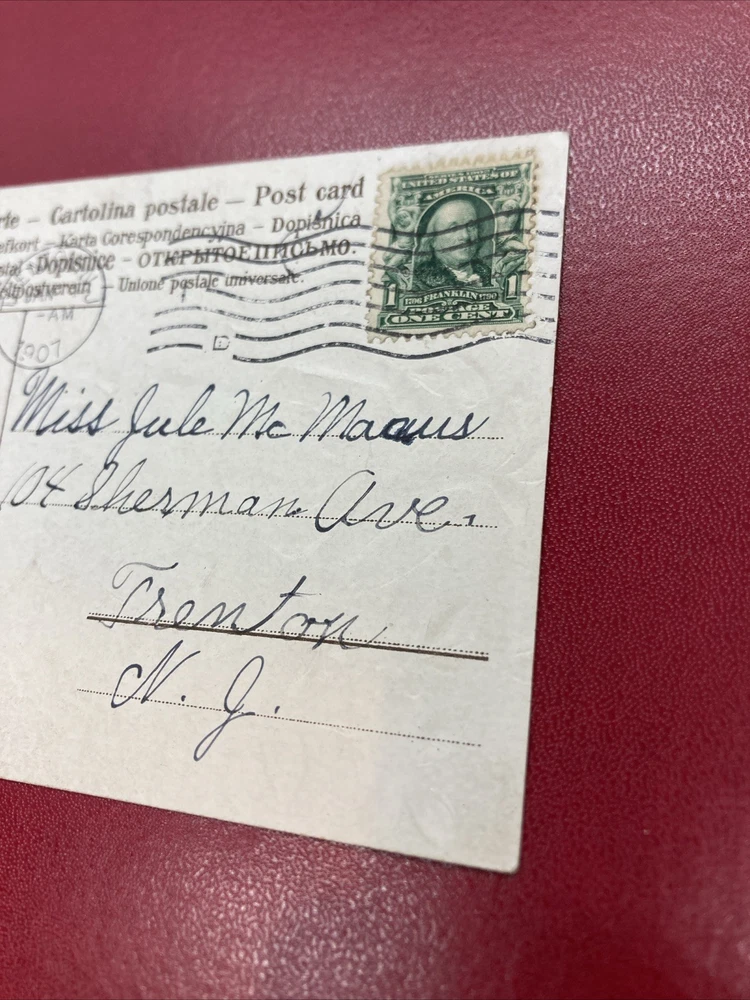 rte – Cartolina postale – Post card
efkort – Karta Corespondencyjna – Dopisnica
Dopisnice – ОТКРЫТОЕ ПИСЬМО.
eltpostverein Unione postale universale.
SERIES 1902
UNITED STATES OF
AMERICA
1 1
1706 FRANKLIN 1790
POSTAGE
ONE CENT
-AM
1907
D
Miss Jule Mc Manus
104 Sherman Ave.
Trenton
N. J.